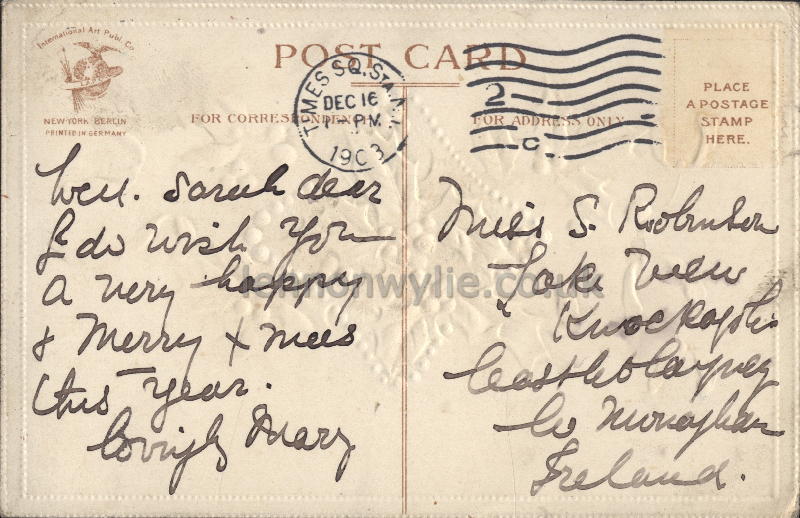 International Art Publ. Co.
NEW-YORK BERLIN
PRINTED IN GERMANY
POST CARD
FOR CORRESPONDENCE
FOR ADDRESS ONLY
TIMES SQ. STA. N.Y.
DEC 16
1-PM
1903
2
C
PLACE
A POSTAGE
STAMP
HERE.
Well. Sarah dear
I do wish You
a very happy
& Merry Xmas
this Year.
lovingly Mary
Miss S. Robinson
Lake View
Castleblayney
Co Monaghan
Ireland.
lennonwylie.co.uk